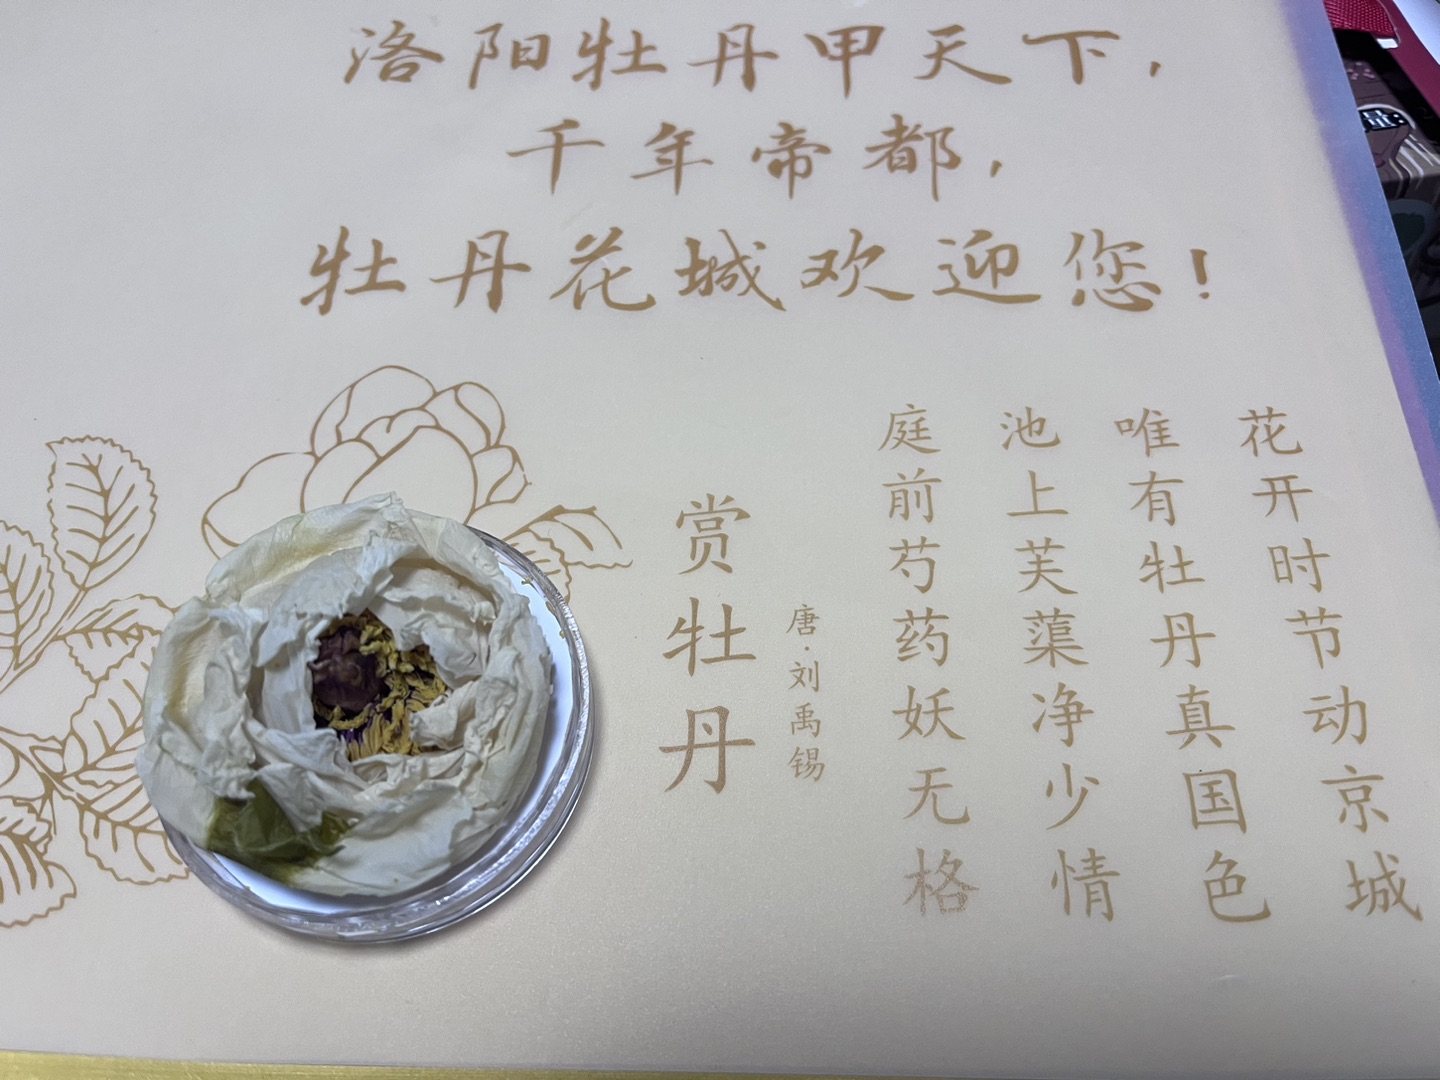 洛阳牡丹甲天下，
千年帝都，
牡丹花城欢迎您！
赏牡丹
唐·刘禹锡
庭前芍药妖无格
池上芙蕖净少情
唯有牡丹真国色
花开时节动京城